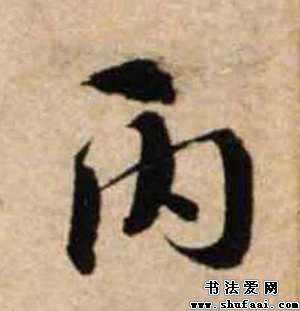 丙
书法爱网
www.shufaai.com